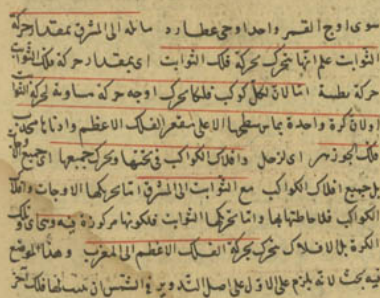 سوى اوج القمر واحد اوجى عطارد مائلة الى المشرق بمقدار حركة
الثوابت علم انها تتحرك بحركة فلك الثوابت اى بمقدار حركة فلك الثوابت
حركة بطيئة اما لان لكل كوكب فلكا يحرك اوجه حركة مساوية لحركة الثوابت
اولان كرة واحدة يماس سطحها الاعلى مقعر الفلك الاعظم وادناها محدب
فلك الجوزهر اى لزحل وافلاك الكواكب فى ثخنها وتحرك جميعها اى جميع
بل جميع افلاك الكواكب مع الثوابت الى المشرق اما تحريكها الاوجات وافلاك
الكواكب فلاحاطتها بها واما تحريكها الثوابت فلكونها مركوزة فيه
الكرة بل الافلاك تتحرك بحركة الفلك الاعظم الى المغرب وهذا الموضع
فيه بحث لانه يلزم على الاول على اصل التدوير فى الشمس ان